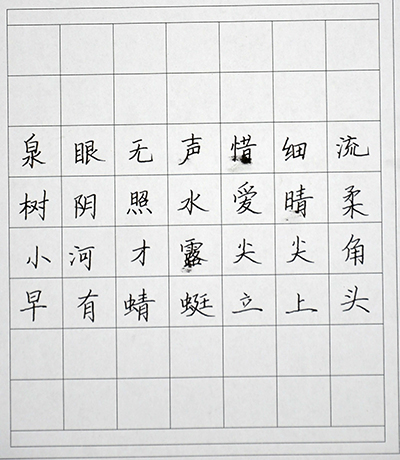 泉眼无声惜细流
树阴照水爱晴柔
小河才露尖尖角
早有蜻蜓立上头